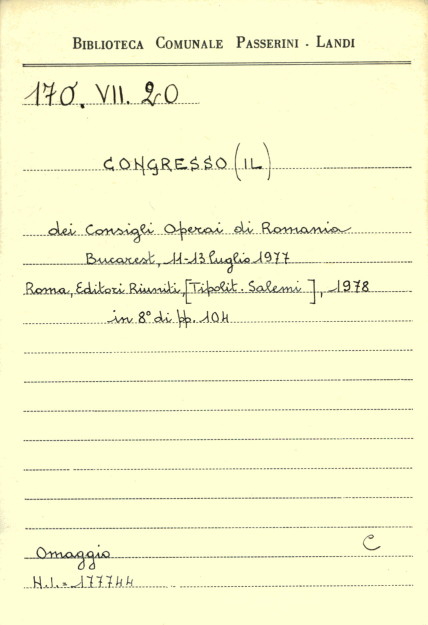 BIBLIOTECA COMUNALE PASSERINI - LANDI
170. VII. 20
CONGRESSO (IL)
dei Consigli Operai di Romania
Bucarest, 11-13 luglio 1977
Roma, Editori Riuniti, [Tipolit. Salemi], 1978
in 8° di pp. 104
C
Omaggio
N.I. = 177744